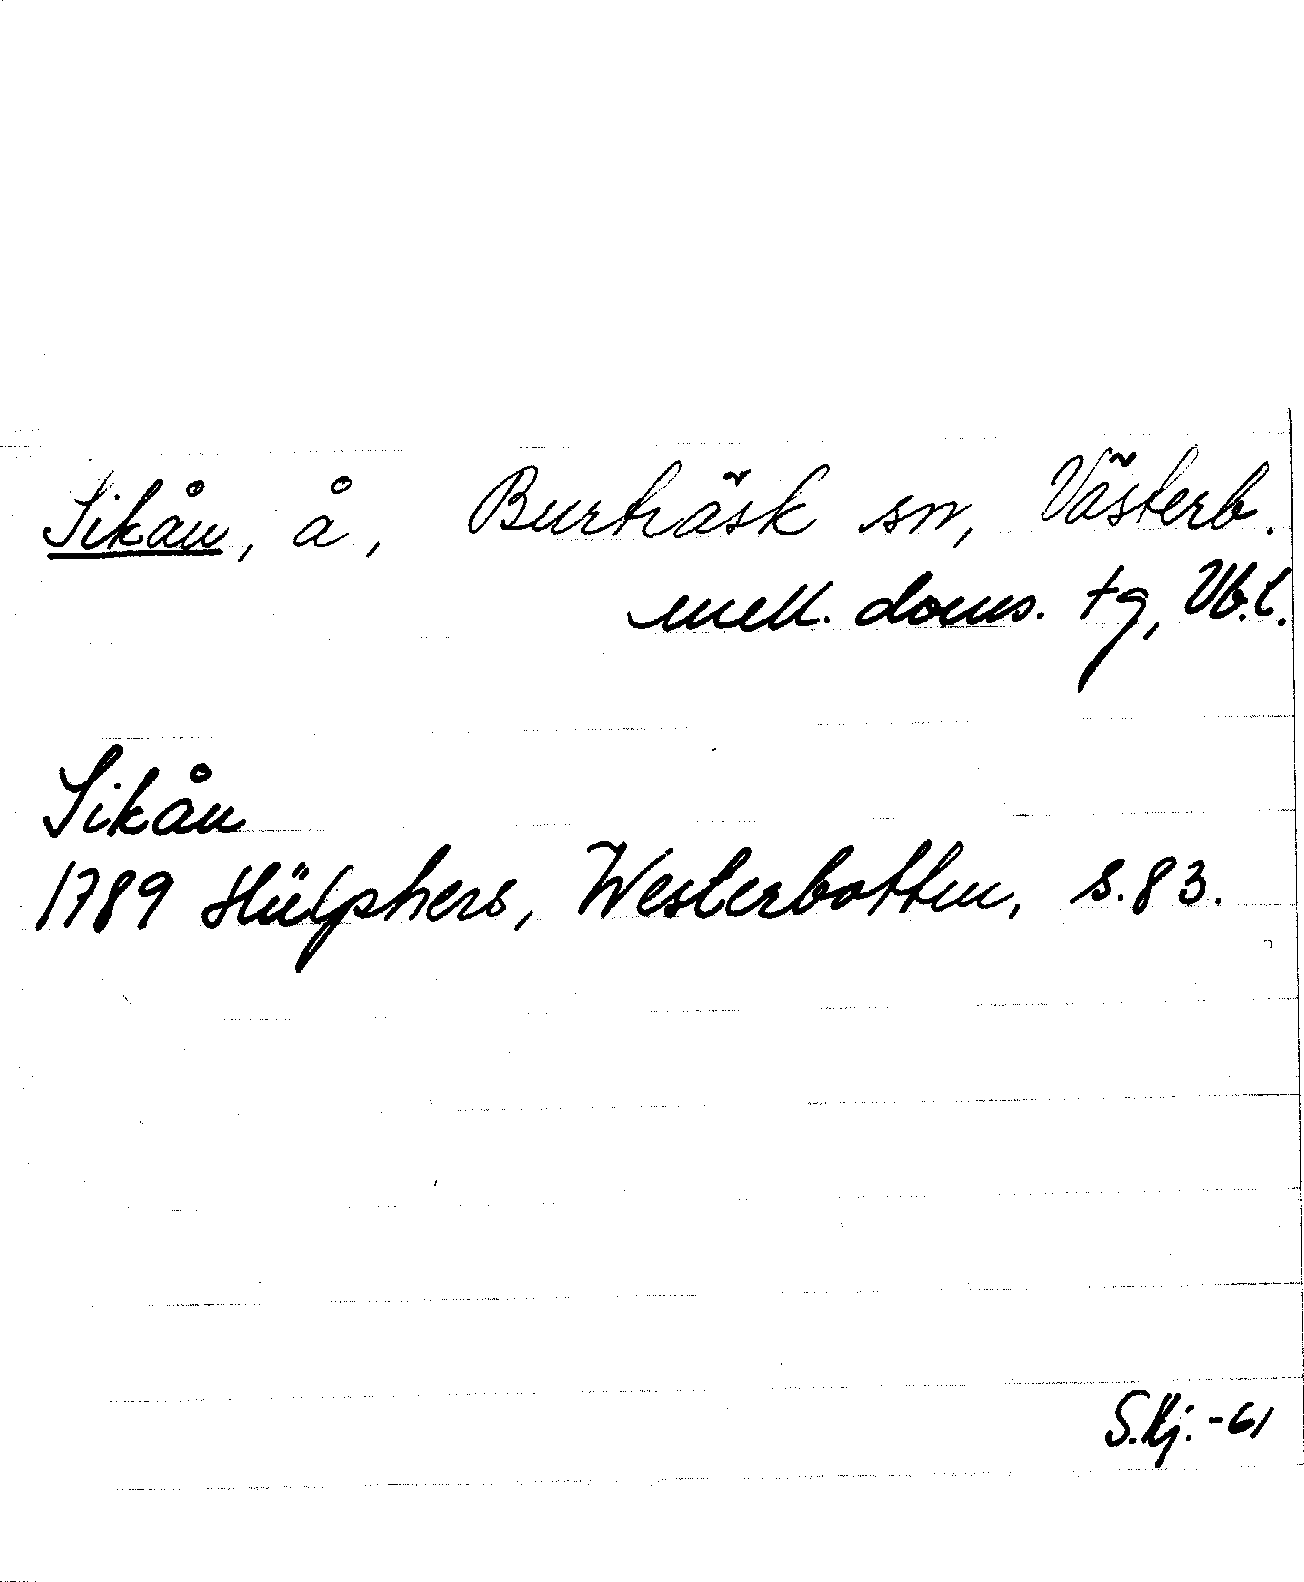 Sikån, å, Burträsk sn, Västerb.
mell. doms. tg, Vb.l.
Sikån
1789 Hülphers, Westerbotten, s. 83.
S.Kj. -61